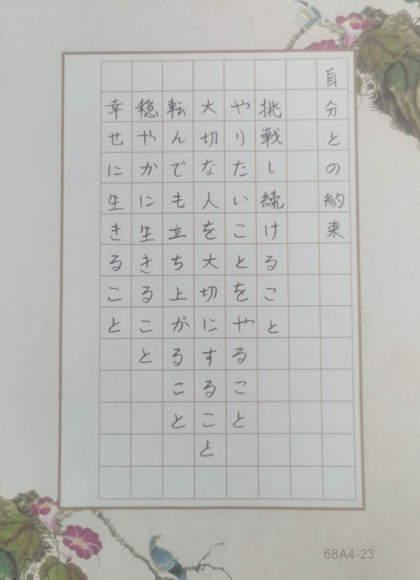 自分との約束
挑戦し続けること
やりたいことをやること
大切な人を大切にすること
転んでも立ち上がること
穏やかに生きること
幸せに生きること
68A4-23